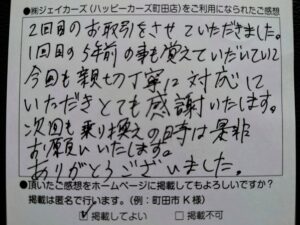 ●㈱ジェイカーズ(ハッピーカーズ町田店)をご利用になられたご感想
2回目のお取引をさせていただきました。
1回目の5年前の事も覚えていただいていて
今回も親切丁寧に対応して
いただきとても感謝いたします。
次回も乗り換えの時は是非
お願いいたします。
ありがとうございました。
●頂いたご感想をホームページに掲載してもよろしいですか?
掲載は匿名で行います。(例:町田市K様)
☑掲載してよい □掲載不可